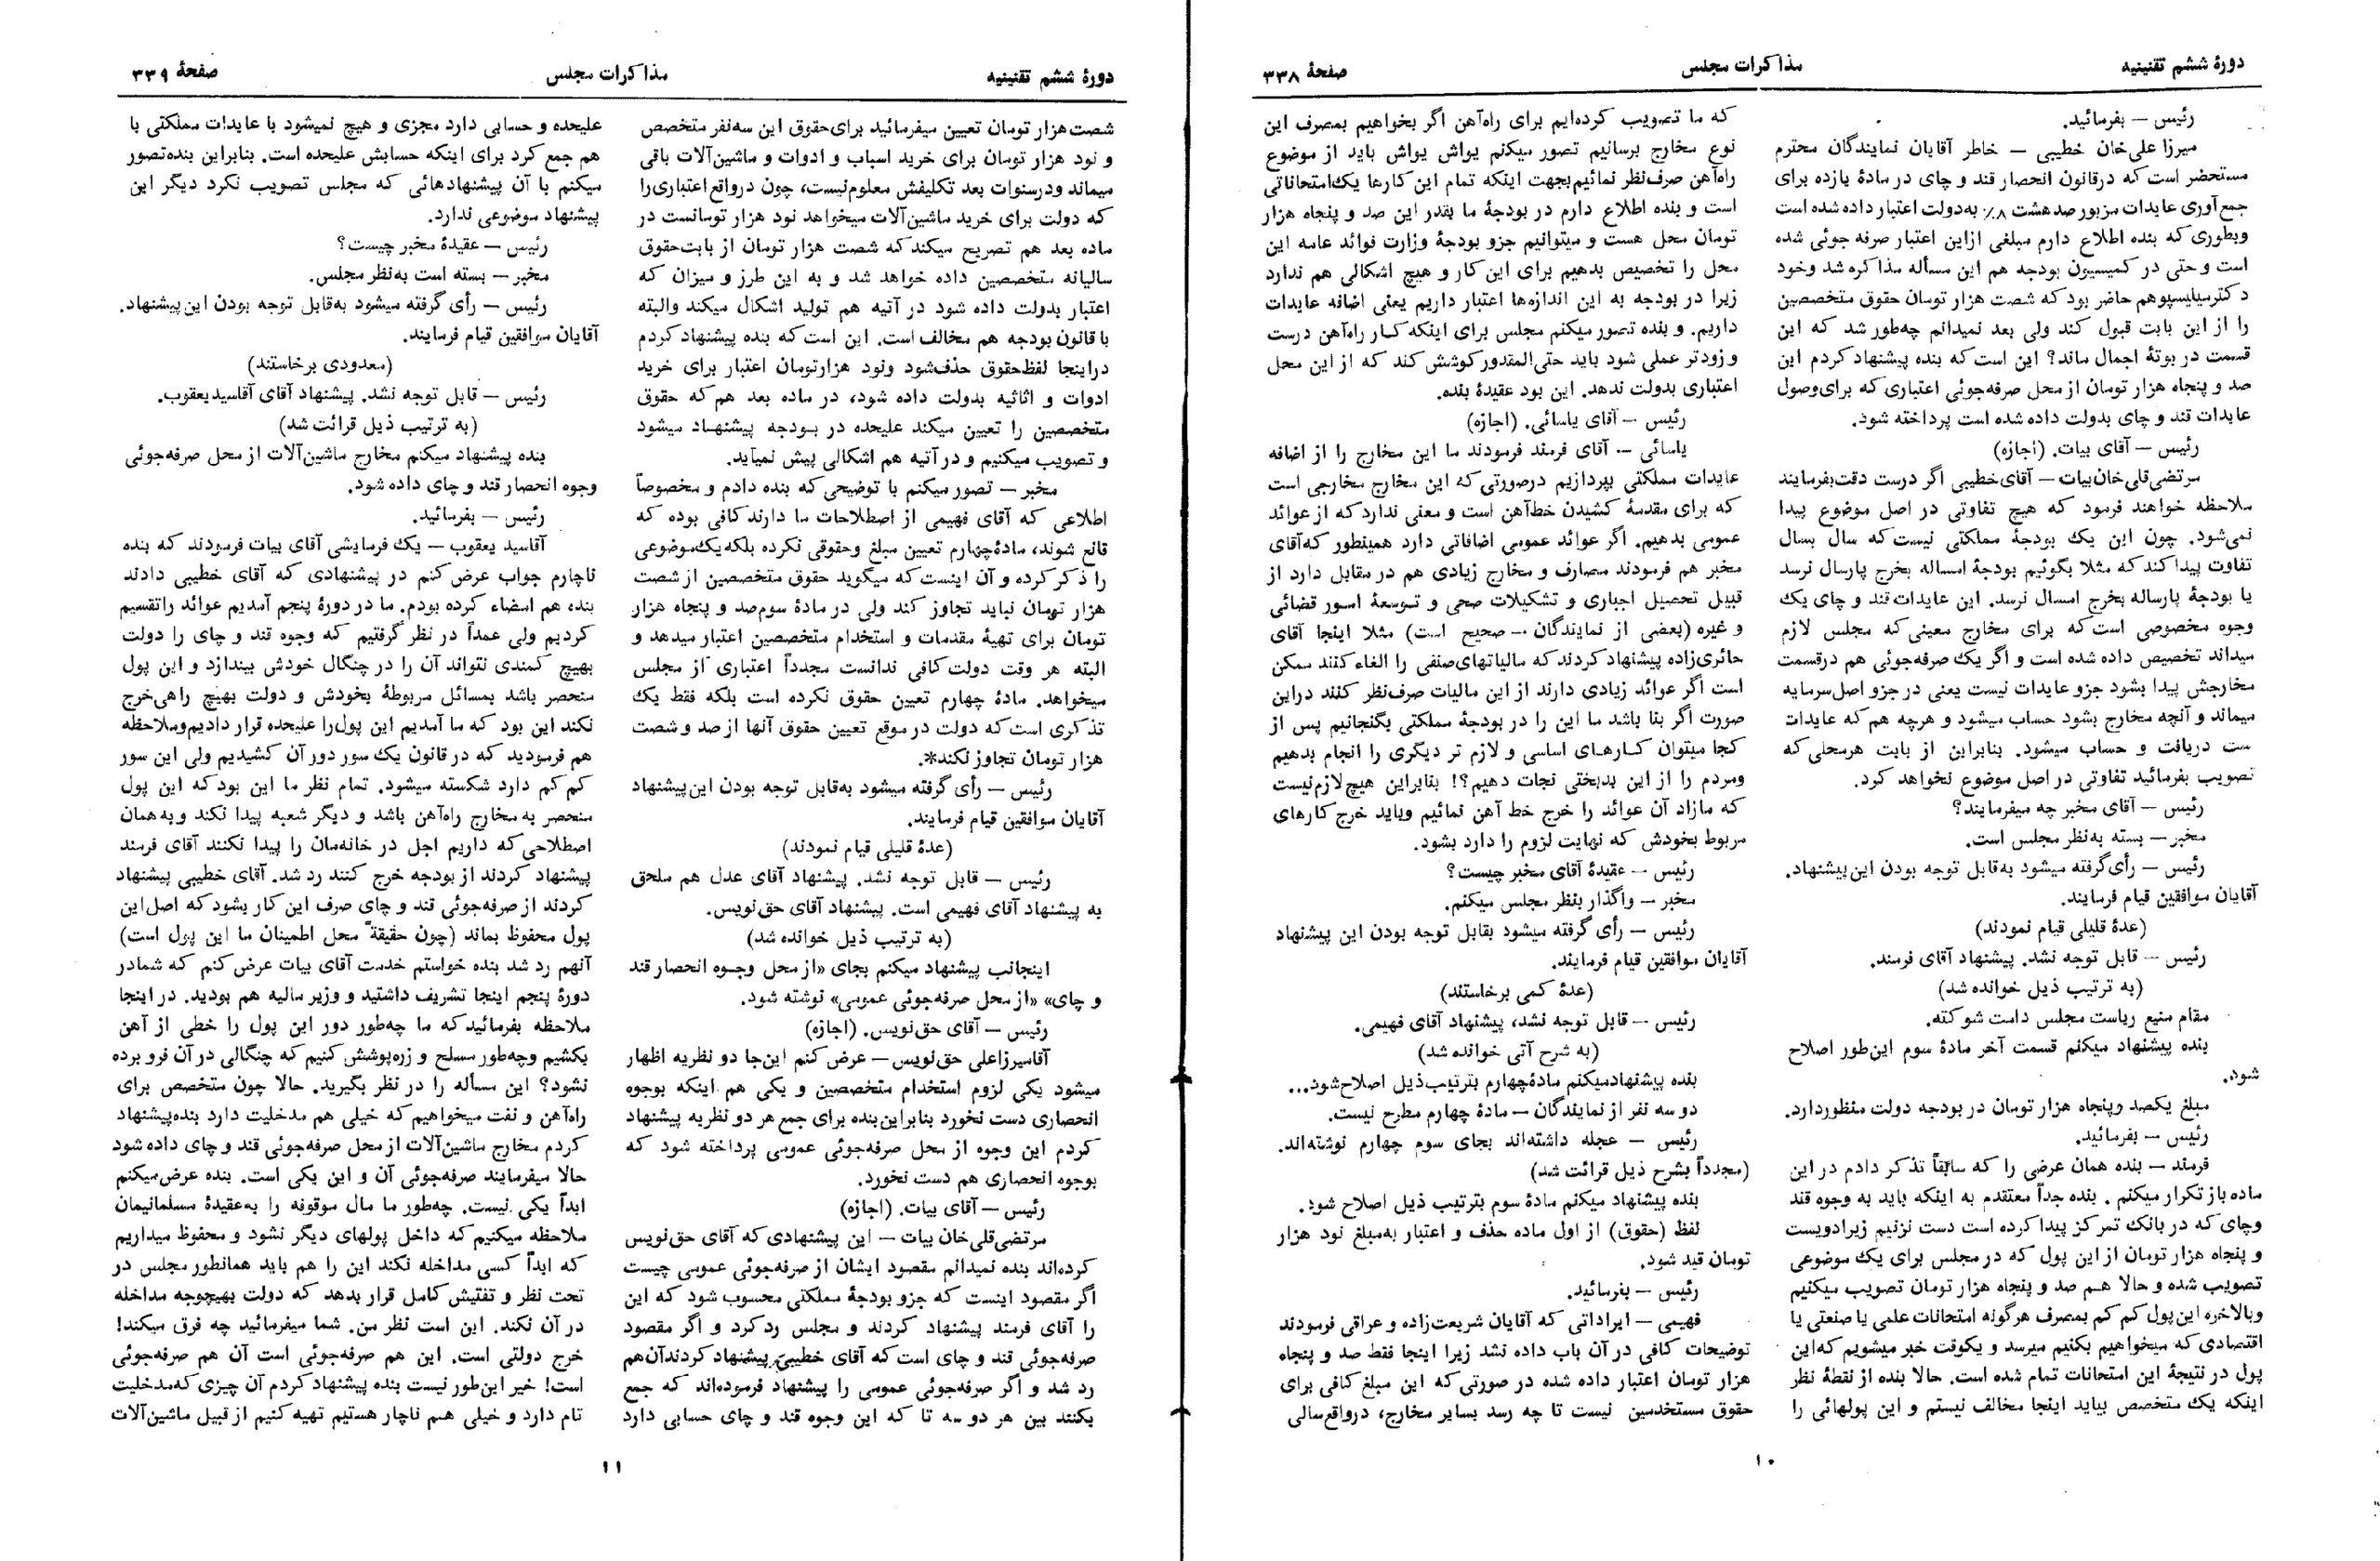 دورهٔ ششم تقنینیه
مذاکرات مجلس
صفحهٔ ۳۳۸
رئیس — بفرمائید.
میرزا علی‌خان خطیبی — خاطر آقایان نمایندگان محترم
مستحضر است که درقانون انحصار قند و چای در مادهٔ یازده برای
جمع‌آوری عایدات مزبور صد هشت ۸٪ به‌دولت اعتبار داده شده است
وبطوری که بنده اطلاع دارم مبلغی ازاین اعتبار صرفه جوئی شده
است و حتی در کمیسیون بودجه هم این مسأله مذاکره شد وخود
دکترمیلیسپوهم حاضر بود که شصت هزار تومان حقوق متخصصین
را از این بابت قبول کند ولی بعد نمیدانم چه‌طور شد که این
قسمت در بوتهٔ اجمال ماند؟ این است که بنده پیشنهاد کردم این
صد و پنجاه هزار تومان از محل صرفه‌جوئی اعتباری که برای‌وصول
عایدات قند و چای بدولت داده شده است پرداخته شود.
رئیس — آقای بیات. (اجازه)
مرتضی‌قلی‌خان‌بیات — آقای‌خطیبی اگر درست دقت‌بفرمایند
ملاحظه خواهند فرمود که هیچ تفاوتی در اصل موضوع پیدا
نمی‌شود. چون این یک بودجهٔ مملکتی نیست‌که سال بسال
تفاوت پیدا کند که مثلا بگوئیم بودجهٔ امساله بخرج پارسال نرسد
یا بودجهٔ پارساله بخرج امسال نرسد. این عایدات قند و چای یک
وجوه مخصوصی است‌که برای مخارج معینی‌که مجلس لازم
میداند تخصیص داده شده است و اگر یک صرفه‌جوئی هم درقسمت
مخارجش پیدا بشود جزو عایدات نیست یعنی در جزو اصل‌سرمایه
میماند و آنچه مخارج بشود حساب میشود و هرچه هم که عایدات
ست دریافت و حساب میشود. بنابراین از بابت هرمحلی که
تصویب بفرمائید تفاوتی در اصل موضوع نخواهد کرد.
رئیس — آقای مخبر چه میفرمایند؟
مخبر — بسته به‌نظر مجلس است.
رئیس — رأی‌گرفته میشود به‌قابل توجه بودن این‌پیشنهاد.
آقایان موافقین قیام فرمایند.
(عدهٔ قلیلی قیام نمودند)
رئیس — قابل توجه نشد. پیشنهاد آقای فرمند.
(به ترتیب ذیل خوانده شد)
مقام منیع ریاست مجلس دامت شوکته.
بنده پیشنهاد میکنم قسمت آخر مادهٔ سوم این‌طور اصلاح
شود.
مبلغ یکصد وپنجاه هزار تومان در بودجه دولت منظوردارد.
رئیس — بفرمائید.
فرمند — بنده همان عرضی را که سابقاً تذکر دادم در این
ماده باز تکرار میکنم. بنده جداً معتقدم به اینکه باید به وجوه قند
وچای که در بانک تمرکز پیدا کرده است دست نزنیم زیرادویست
و پنجاه هزار تومان از این پول که در مجلس برای یک موضوعی
تصویب شده و حالا هم صد و پنجاه هزار تومان تصویب میکنیم
وبالاخره این‌پول کم کم بمصرف هرگونه امتحانات علمی یا صنعتی یا
اقتصادی که میخواهیم بکنیم میرسد و یکوقت خبر میشویم که‌این
پول در نتیجهٔ این امتحانات تمام شده است. حالا بنده از نقطهٔ نظر
اینکه یک متخصص بیاید اینجا مخالف نیستم و این پولهائی را
که ما تصویب کرده‌ایم برای راه‌آهن اگر بخواهیم بمصرف این
نوع مخارج برسانیم تصور میکنم یواش یواش باید از موضوع
راه‌آهن صرف‌نظر نمائیم‌بجهت اینکه تمام این کارها یک‌امتحاناتی
است و بنده اطلاع دارم در بودجهٔ ما بقدر این صد و پنجاه هزار
تومان محل هست و میتوانیم جزو بودجهٔ وزارت فوائد عامه این
محل را تخصیص بدهیم برای این کار و هیچ اشکالی هم ندارد
زیرا در بودجه به این اندازه‌ها اعتبار داریم یعنی اضافه عایدات
داریم. و بنده تصور میکنم مجلس برای اینکه کار راه‌آهن درست
و زودتر عملی شود باید حتی‌المقدور کوشش کند که از این محل
اعتباری بدولت ندهد. این بود عقیدهٔ بنده.
رئیس — آقای یاسائی. (اجازه)
یاسائی — آقای فرمند فرمودند ما این مخارج را از اضافه
عایدات مملکتی بپردازیم درصورتی‌که این مخارج مخارجی است
که برای مقدمهٔ کشیدن خط‌آهن است و معنی ندارد که از عوائد
عمومی بدهیم. اگر عوائد عمومی اضافاتی دارد همینطور که‌آقای
مخبر هم فرمودند مصارف و مخارج زیادی هم در مقابل دارد از
قبیل تحصیل اجباری و تشکیلات صحی و توسعهٔ امور قضائی
و غیره (بعضی از نمایندگان — صحیح است) مثلا اینجا آقای
حائری‌زاده پیشنهاد کردند که مالیاتهای‌صنفی را الغاء کنند ممکن
است اگر عوائد زیادی دارند از این مالیات صرف‌نظر کنند دراین
صورت اگر بنا باشد ما این را در بودجهٔ مملکتی بگنجانیم پس از
کجا میتوان کارهای اساسی و لازم تر دیگری را انجام بدهیم
ومردم را از این بدبختی نجات دهیم؟! بنابراین هیچ‌لازم‌نیست
که مازاد آن عوائد را خرج خط آهن نمائیم وباید خرج کارهای
مربوط بخودش که نهایت لزوم را دارد بشود.
رئیس — عقیدهٔ آقای مخبر چیست؟
مخبر — واگذار بنظر مجلس میکنم.
رئیس — رأی گرفته میشود بقابل توجه بودن این پیشنهاد
آقایان موافقین قیام فرمایند.
(عدهٔ کمی برخاستند)
رئیس — قابل توجه نشد، پیشنهاد آقای فهیمی.
(به شرح آتی خوانده شد)
بنده پیشنهادمیکنم مادهٔ‌چهارم بترتیب‌ذیل اصلاح‌شود...
دو سه نفر از نمایندگان — مادهٔ چهارم مطرح نیست.
رئیس — عجله داشته‌اند بجای سوم چهارم نوشته‌اند.
(مجدداً بشرح ذیل قرائت شد)
بنده پیشنهاد میکنم مادهٔ سوم بترتیب ذیل اصلاح شود.
لفظ (حقوق) از اول ماده حذف و اعتبار به‌مبلغ نود هزار
تومان قید شود.
رئیس — بفرمائید.
فهیمی — ایراداتی که آقایان شریعت‌زاده و عراقی فرمودند
توضیحات کافی در آن باب داده نشد زیرا اینجا فقط صد و پنجاه
هزار تومان اعتبار داده شده در صورتی‌که این مبلغ کافی برای
حقوق مستخدمین نیست تا چه رسد بسایر مخارج، درواقع‌سالی
۱۰
دورهٔ ششم تقنینیه
مذاکرات مجلس
صفحهٔ ۳۳۹
شصت هزار تومان تعیین میفرمائید برای‌حقوق این سه‌نفر متخصص
و نود هزار تومان برای خرید اسباب و ادوات و ماشین‌آلات باقی
میماند ودرسنوات بعد تکلیفش معلوم‌نیست، چون درواقع اعتباری‌را
که دولت برای خرید ماشین‌آلات میخواهد نود هزار تومانست در
ماده بعد هم تصریح میکند که شصت هزار تومان از بابت‌حقوق
سالیانه متخصصین داده خواهد شد و به این طرز و میزان که
اعتبار بدولت داده شود در آتیه هم تولید اشکال میکند والبته
با قانون بودجه هم مخالف است. این است که بنده پیشنهاد کردم
دراینجا لفظ‌حقوق حذف‌شود ونود هزارتومان اعتبار برای خرید
ادوات و اثاثیه بدولت داده شود، در ماده بعد هم که حقوق
متخصصین را تعیین میکند علیحده در بودجه پیشنهاد میشود
و تصویب میکنیم و در آتیه هم اشکالی پیش نمیآید.
مخبر — تصور میکنم با توضیحی‌که بنده دادم و مخصوصاً
اطلاعی که آقای فهیمی از اصطلاحات ما دارند کافی بوده که
قانع شوند، مادهٔ‌چهارم تعیین مبلغ وحقوقی نکرده بلکه یک‌موضوعی
را ذکر کرده و آن اینست‌که میگوید حقوق متخصصین از شصت
هزار تومان نباید تجاوز کند ولی در مادهٔ سوم‌صد و پنجاه هزار
تومان برای تهیهٔ مقدمات و استخدام متخصصین اعتبار میدهد و
البته هر وقت دولت کافی ندانست مجدداً اعتباری از مجلس
میخواهد. مادهٔ چهارم تعیین حقوق نکرده است بلکه فقط یک
تذکری است‌که دولت در موقع تعیین حقوق آنها از صد و شصت
هزار تومان تجاوز نکند*.
رئیس — رأی گرفته میشود به‌قابل توجه بودن این‌پیشنهاد
آقایان موافقین قیام فرمایند.
(عدهٔ قلیلی قیام نمودند)
رئیس — قابل توجه نشد. پیشنهاد آقای عدل هم ملحق
به پیشنهاد آقای فهیمی است. پیشنهاد آقای حق‌نویس.
(به ترتیب ذیل خوانده شد)
اینجانب پیشنهاد میکنم بجای «از محل وجوه انحصار قند
و چای» «از محل صرفه‌جوئی عمومی» نوشته شود.
رئیس — آقای حق‌نویس. (اجازه)
آقامیرزاعلی حق‌نویس — عرض‌کنم این‌جا دو نظریه اظهار
میشود یکی لزوم استخدام متخصصین و یکی هم اینکه بوجوه
انحصاری دست نخورد بنابراین‌بنده برای جمع هر دو نظریه پیشنهاد
کردم این وجوه از محل صرفه‌جوئی عمومی پرداخته شود که
بوجوه انحصاری هم دست نخورد.
رئیس — آقای بیات. (اجازه)
مرتضی‌قلی‌خان بیات — این پیشنهادی که آقای حق‌نویس
کرده‌اند بنده نمیدانم مقصود ایشان از صرفه‌جوئی عمومی چیست
اگر مقصود اینست که جزو بودجهٔ مملکتی محسوب شود که این
را آقای فرمند پیشنهاد کردند و مجلس رد کرد و اگر مقصود
صرفه‌جوئی قند و چای است‌که آقای خطیبی پیشنهاد کردندآن‌هم
رد شد و اگر صرفه‌جوئی عمومی را پیشنهاد فرموده‌اند که جمع
بکنند بین هر دو سه تا که این وجوه قند و چای حسابی دارد
علیحده و حسابی دارد مجزی و هیچ نمیشود با عایدات مملکتی با
هم جمع کرد برای اینکه حسابش علیحده است. بنابراین بنده‌تصور
میکنم با آن پیشنهادهائی که مجلس تصویب نکرد دیگر این
پیشنهاد موضوعی ندارد.
رئیس — عقیدهٔ مخبر چیست؟
مخبر — بسته است به‌نظر مجلس.
رئیس — رأی گرفته میشود به‌قابل توجه بودن این‌پیشنهاد.
آقایان موافقین قیام فرمایند.
(معدودی برخاستند)
رئیس — قابل توجه نشد. پیشنهاد آقای آقاسیدیعقوب.
(به ترتیب ذیل قرائت شد)
بنده پیشنهاد میکنم مخارج ماشین‌آلات از محل صرفه‌جوئی
وجوه انحصار قند و چای داده شود.
رئیس — بفرمائید.
آقاسید یعقوب — یک فرمایشی آقای بیات فرمودند که بنده
ناچارم جواب عرض کنم در پیشنهادی که آقای خطیبی دادند
بنده هم امضاء کرده بودم. ما در دورهٔ پنجم آمدیم عوائد راتقسیم
کردیم ولی عمداً در نظر گرفتیم که وجوه قند و چای را دولت
بهیچ کمندی نتواند آن را در چنگال خودش بیندازد و این پول
منحصر باشد بمسائل مربوطهٔ بخودش و دولت بهیچ راهی‌خرج
نکند این بود که ما آمدیم این پول‌را علیحده قرار دادیم‌وملاحظه
هم فرمودید که در قانون یک سور دور آن کشیدیم ولی این سور
کم کم دارد شکسته میشود. تمام نظر ما این بود که این پول
منحصر به مخارج راه‌آهن باشد و دیگر شعبه پیدا نکند وبه‌همان
اصطلاحی‌که داریم اجل در خانه‌مان را پیدا نکنند آقای فرمند
پیشنهاد کردند از بودجه خرج کنند رد شد. آقای خطیبی پیشنهاد
کردند از صرفه‌جوئی قند و چای صرف این کار بشود که اصل‌این
پول محفوظ بماند (چون حقیقةً محل اطمینان ما این پول است)
آنهم رد شد بنده خواستم خدمت آقای بیات عرض کنم که شمادر
دورهٔ پنجم اینجا تشریف داشتید و وزیر مالیه هم بودید. در اینجا
ملاحظه بفرمائید که ما چه‌طور دور این پول را خطی از آهن
بکشیم وچه‌طور مسلح و زره‌پوشش کنیم که چنگالی در آن فرو برده
نشود؟ این مسأله را در نظر بگیرید. حالا چون متخصص برای
راه‌آهن و نفت میخواهیم که خیلی هم مدخلیت دارد بنده‌پیشنهاد
کردم مخارج ماشین‌آلات از محل صرفه‌جوئی قند و چای داده شود
حالا میفرمایند صرفه‌جوئی آن و این یکی است. بنده عرض‌میکنم
ابداً یکی نیست. چه‌طور ما مال موقوفه را به‌عقیدهٔ مسلمانیمان
ملاحظه میکنیم که داخل پولهای دیگر نشود و محفوظ میداریم
که ابداً کسی مداخله نکند این را هم باید همانطور مجلس در
تحت نظر و تفتیش کامل قرار بدهد که دولت بهیچوجه مداخله
در آن نکند. این است نظر من. شما میفرمائید چه فرق میکند!
خرج دولتی است. این هم صرفه‌جوئی است آن هم صرفه‌جوئی
است! خیر این‌طور نیست بنده پیشنهاد کردم آن چیزی که‌مدخلیت
تام دارد و خیلی هم ناچار هستیم تهیه کنیم از قبیل ماشین‌آلات
۱۱